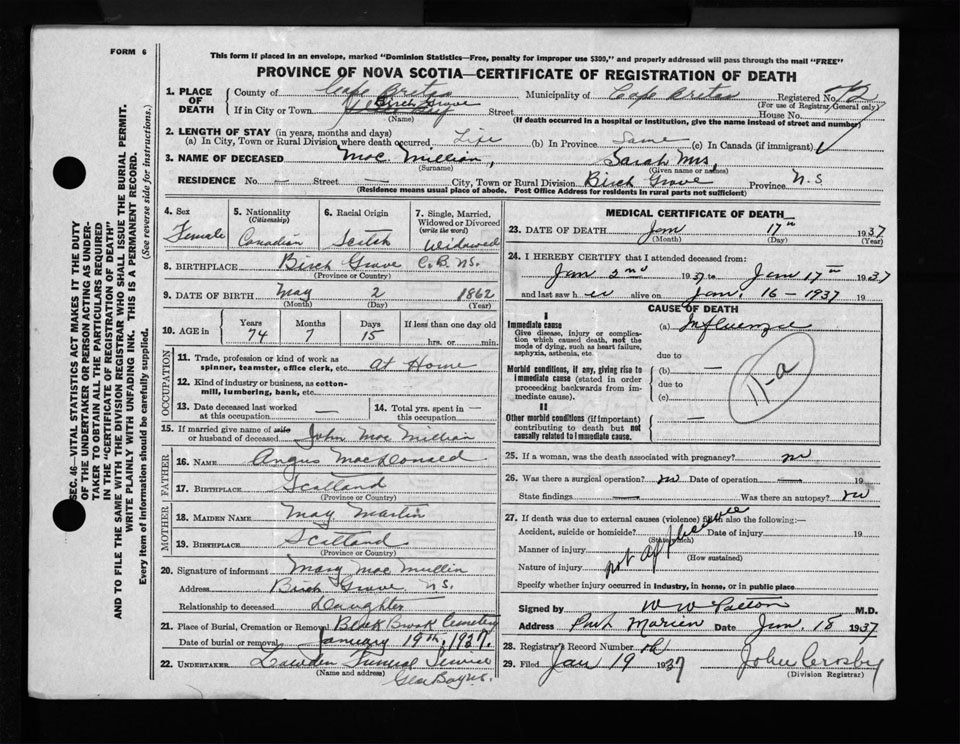 FORM 6
This form if placed in an envelope, marked "Dominion Statistics—Free, penalty for improper use $300," and properly addressed will pass through the mail "FREE"
PROVINCE OF NOVA SCOTIA—CERTIFICATE OF REGISTRATION OF DEATH
SEC. 46—VITAL STATISTICS ACT MAKES IT THE DUTY
OF THE UNDERTAKER OR PERSON ACTING AS UNDER-
TAKER TO OBTAIN ALL THE PARTICULARS REQUIRED
IN THE "CERTIFICATE OF REGISTRATION OF DEATH"
AND TO FILE THE SAME WITH THE DIVISION REGISTRAR WHO SHALL ISSUE THE BURIAL PERMIT.
WRITE PLAINLY WITH UNFADING INK. THIS IS A PERMANENT RECORD.
Every item of information should be carefully supplied. (See reverse side for instructions.)
1. PLACE OF DEATH
County of Cape Breton Municipality of Cape Breton Registered No.
(For use of Registrar General only)
If in City or Town Birch Grove Street House No.
(Name) (If death occurred in a hospital or institution, give the name instead of street and number)
2. LENGTH OF STAY (in years, months and days)
(a) In City, Town or Rural Division where death occurred Life (b) In Province Same (c) In Canada (if immigrant)
3. NAME OF DECEASED Mac Millian, Sarah Mrs,
(Surname) (Given name or names)
RESIDENCE No. — Street — City, Town or Rural Division Birch Grove Province N.S.
(Residence means usual place of abode. Post Office Address for residents in rural parts not sufficient)
4. Sex Female
5. Nationality (Citizenship) Canadian
6. Racial Origin Scotch
7. Single, Married, Widowed or Divorced (write the word) Widowed
8. BIRTHPLACE Birch Grove C.B. N.S.
(Province or Country)
9. DATE OF BIRTH May 2 1862
(Month) (Day) (Year)
10. AGE in Years 74 Months 7 Days 15 If less than one day old hrs. or min.
OCCUPATION
11. Trade, profession or kind of work as spinner, teamster, office clerk, etc. At Home
12. Kind of industry or business, as cotton-mill, lumbering, bank, etc.
13. Date deceased last worked at this occupation —
14. Total yrs. spent in this occupation —
15. If married give name of wife or husband of deceased John Mac Millian
FATHER
16. NAME Angus MacDonald
17. BIRTHPLACE Scotland
(Province or Country)
MOTHER
18. MAIDEN NAME May Martin
19. BIRTHPLACE Scotland
(Province or Country)
20. Signature of informant Mary Mac Mullin
Address Birch Grove N.S.
Relationship to deceased Daughter
21. Place of Burial, Cremation or Removal Black Brook Cemetery
Date of burial or removal January 19th, 1937.
22. UNDERTAKER Lowden Funeral Service
(Name and address) Glace Bay N.S.
MEDICAL CERTIFICATE OF DEATH
23. DATE OF DEATH Jan 17th 1937
(Month) (Day) (Year)
24. I HEREBY CERTIFY that I attended deceased from:
Jan 2nd 1937 to Jan 17th 1937
and last saw her alive on Jan. 16 - 1937 19
CAUSE OF DEATH
I
Immediate cause (a) Influenza
Give disease, injury or complication which caused death, not the mode of dying, such as heart failure, asphyxia, asthenia, etc.
due to
Morbid conditions, if any, giving rise to immediate cause (stated in order proceeding backwards from immediate cause).
(b) —
due to
(c)
11-a
II
Other morbid conditions (if important) contributing to death but not causally related to immediate cause. —
25. If a woman, was the death associated with pregnancy? no
26. Was there a surgical operation? no Date of operation — 19
State findings — Was there an autopsy? no
27. If death was due to external causes (violence) fill in also the following:—
Accident, suicide or homicide? Date of injury 19
(State which)
Manner of injury
(How sustained)
Nature of injury
not applicable
Specify whether injury occurred in industry, in home, or in public place
Signed by W W Patton M.D.
Address Port Morien Date Jan. 18 1937
28. Registrar's Record Number
29. Filed Jan 19 1937 John Crosby
(Division Registrar)